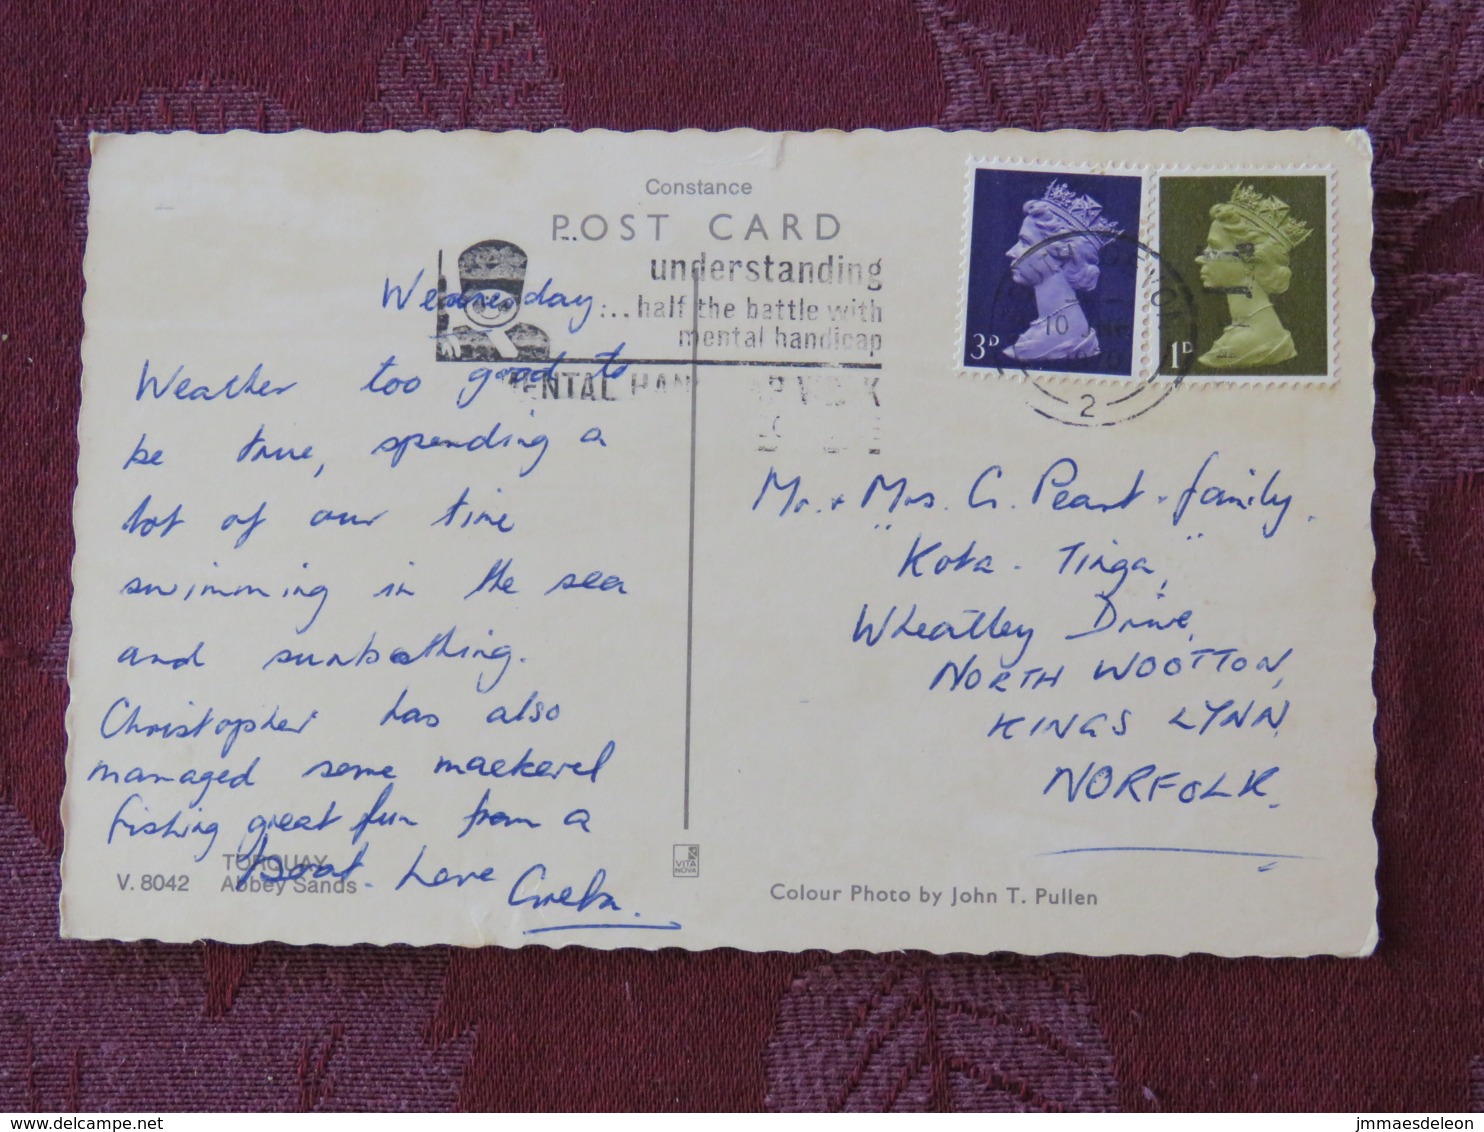 Constance
POST CARD
understanding
... half the battle with
mental handicap
MENTAL HAN
10 JNE
1970
2
3D
1D
Wednesday.
Weather too good to
be true, spending a
lot of our time
swimming in the sea
and sunbathing.
Christopher has also
managed some mackerel
fishing great fun from a
boat. Love
Mr. + Mrs. G. Peart + family.
"Kota - Tinga",
Wheatley Drive,
NORTH WOOTTON,
KINGS LYNN,
NORFOLK.
V. 8042
TORQUAY
Abbey Sands
VITA
NOVA
Colour Photo by John T. Pullen
www.delcampe.net
jmmaesdeleon